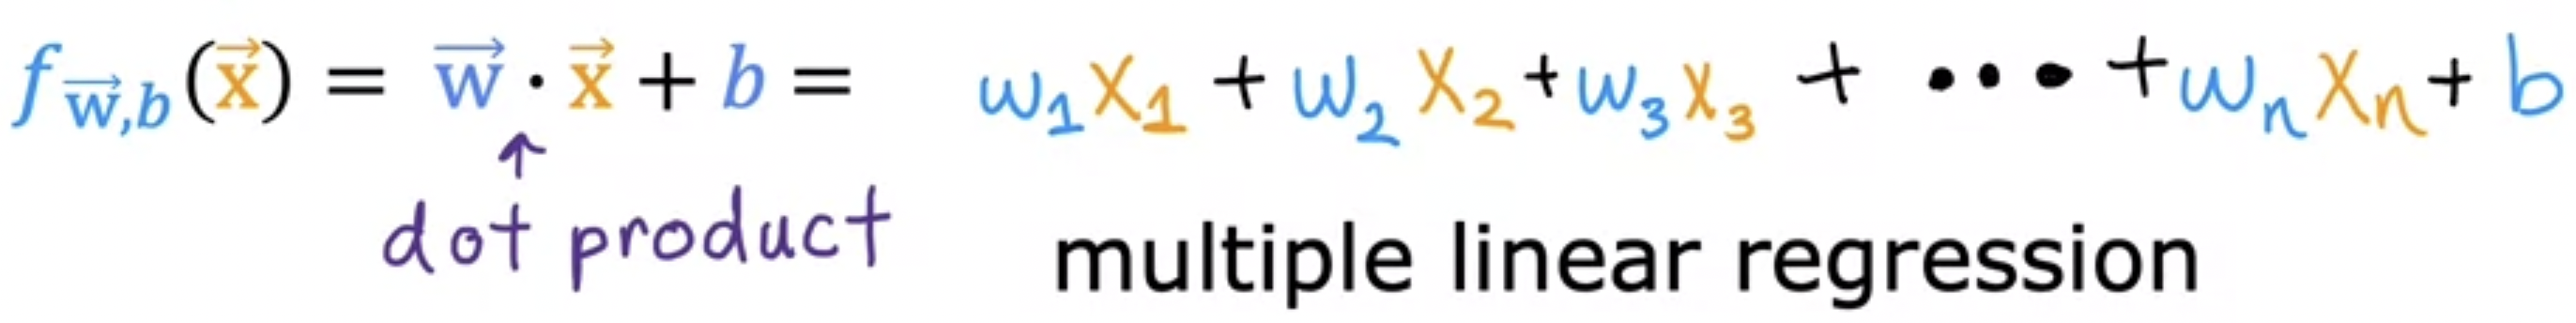 f_{\vec{w},b}(\vec{x}) = \vec{w} · \vec{x} + b = w₁x₁ + w₂x₂ + w₃x₃ + ••• + wₙxₙ + b
↑
dot product
multiple linear regression